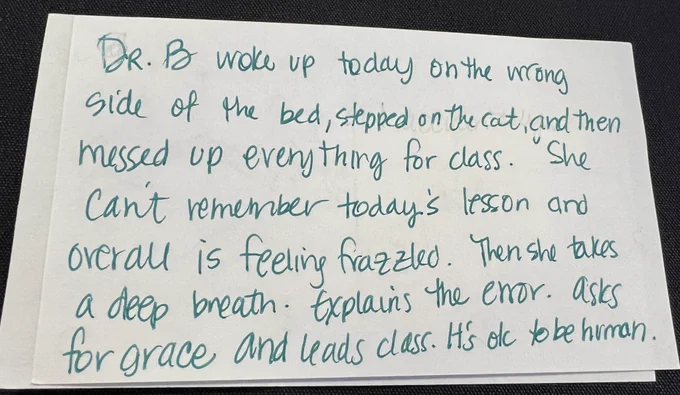 DR. B woke up today on the wrong
side of the bed, stepped on the cat, and then
messed up everything for class. "She
can't remember today's lesson and
overall is feeling frazzled. Then she takes
a deep breath. Explains the error. asks
for grace and leads class. It's ok to be human.